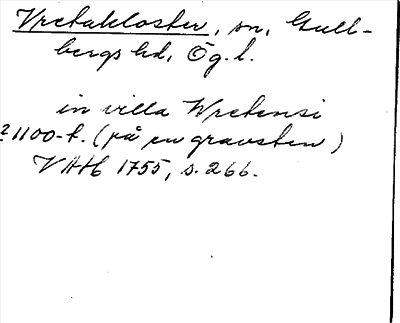 Vretakloster, sn, Gull-
bergs hd, Ög. l.
in villa Wretensi
? 1100-t. (på en gravsten)
VAH 1755, s. 266.